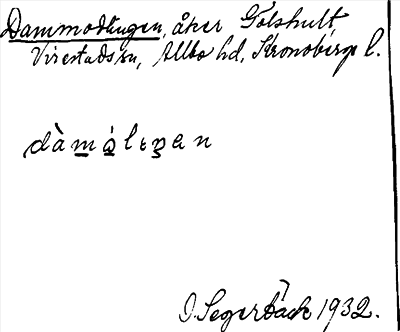 Dammodlingen, åker Gölshult,
Virestads sn, Allbo hd, Kronobergs l.
dàmo̱lɩŋen
O. Segerbäck 1932.